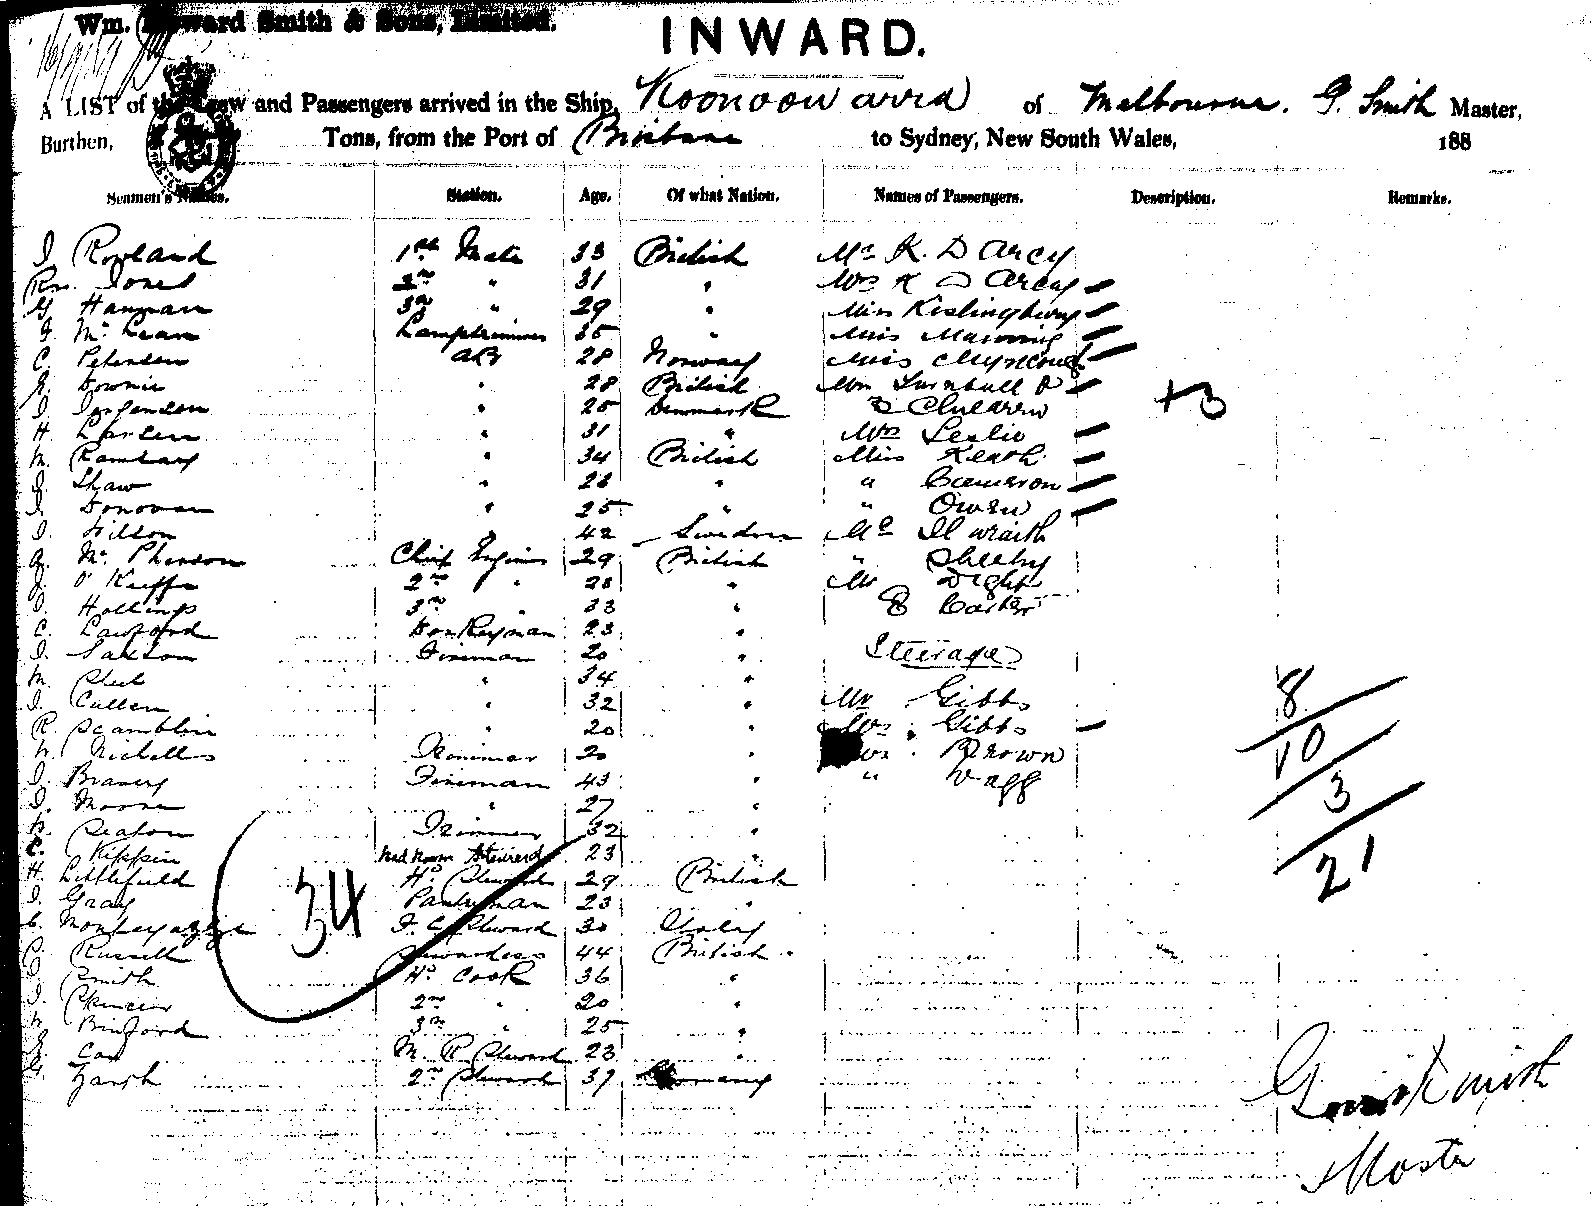 Wm. Howard Smith & Sons, Limited.
INWARD.
A LIST of the Crew and Passengers arrived in the Ship, Koonoowarra of Melbourne. G. Smith Master,
Burthen, Tons, from the Port of Brisbane to Sydney, New South Wales, 188
Seamen's Names. Station. Age. Of what Nation. Names of Passengers. Description. Remarks.
J. Rowland 1st Mate 33 British Mr K. D Arcy
Rn. Jones 2nd " 31 " Mrs K D Arcy
G Hanman 3rd " 29 " Miss Kislingbury
J. Mc Lean Lamptrimmer 35 " Miss Manning
C. Petersen AB 28 Norway Miss
E. Downie " 28 British Mrs Turnbull &
J. Jorgensen " 25 Denmark 3 Children +3
H. Larsen " 31 " Mrs Leslie
M. Ramsay " 34 British Miss Keath
J. Shaw " 28 " " Cameron
J. Donovan " 25 " " Owen
J. Wilson " 42 Sweden Mr Il wraith
A. Mc Pherson Chief Engineer 29 British " Sheehy
J. O' Keeffe 2nd " 28 " Mr Dight
J. Hollings 3rd " 33 " & Carter
C. Lawford Donkeyman 23 "
J. Fireman 20 " Steerage
M. " 34 "
J. Cullen " 32 " Mr Gibbs 8
R. Scamblin " 20 " Mrs Gibbs
W. Nicholls Trimmer 20 " Brown 10
J. Bravery Fireman 43 " " Wagg
J. Moore " 27 " 3
W. Seaton Trimmer 32 "
C. Kippin Mess Room Steward 23 " 21
H. Littlefield Hd Steward 29 British
J. Gray Pantryman 23 "
34
F. C. Steward 30 Italy
Russell Stewardess 44 British
J. Smith Hd Cook 36 "
J. Spencer 2nd " 20 "
W. Binford 3rd " 25 "
Cox M. R. Steward 23 "
G. 2nd Steward 37 Germany
Smith
Master